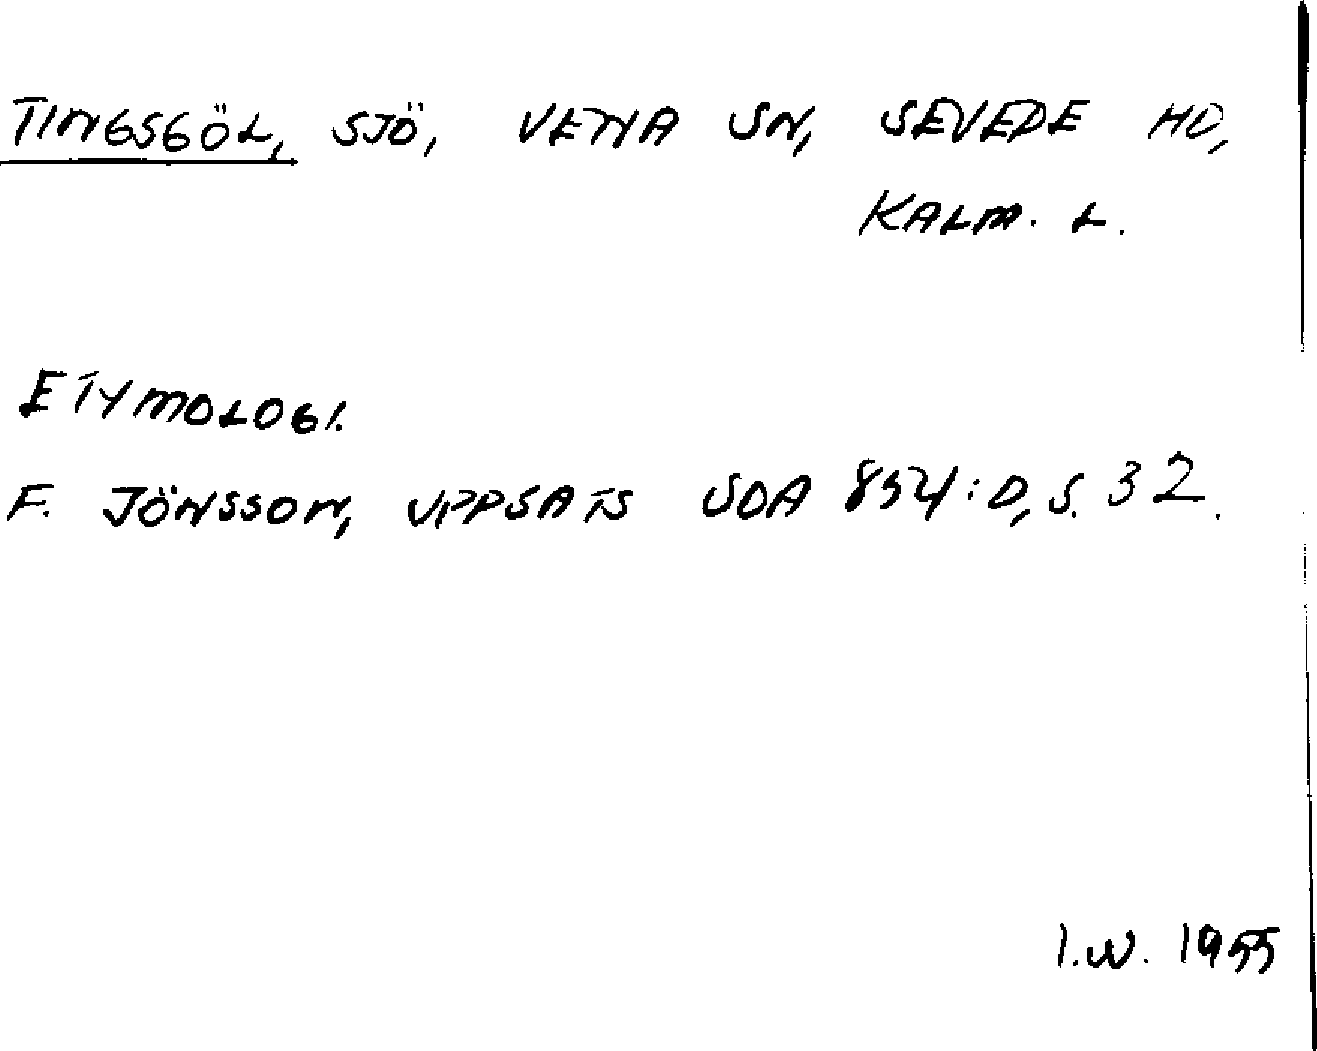 TINGSGÖL, SJÖ, VENA SN, SEVEDE HD,
KALM. L.
ETYMOLOGI.
F. JÖNSSON, UPPSATS SOA 854:D, S. 32.
I.W. 1955